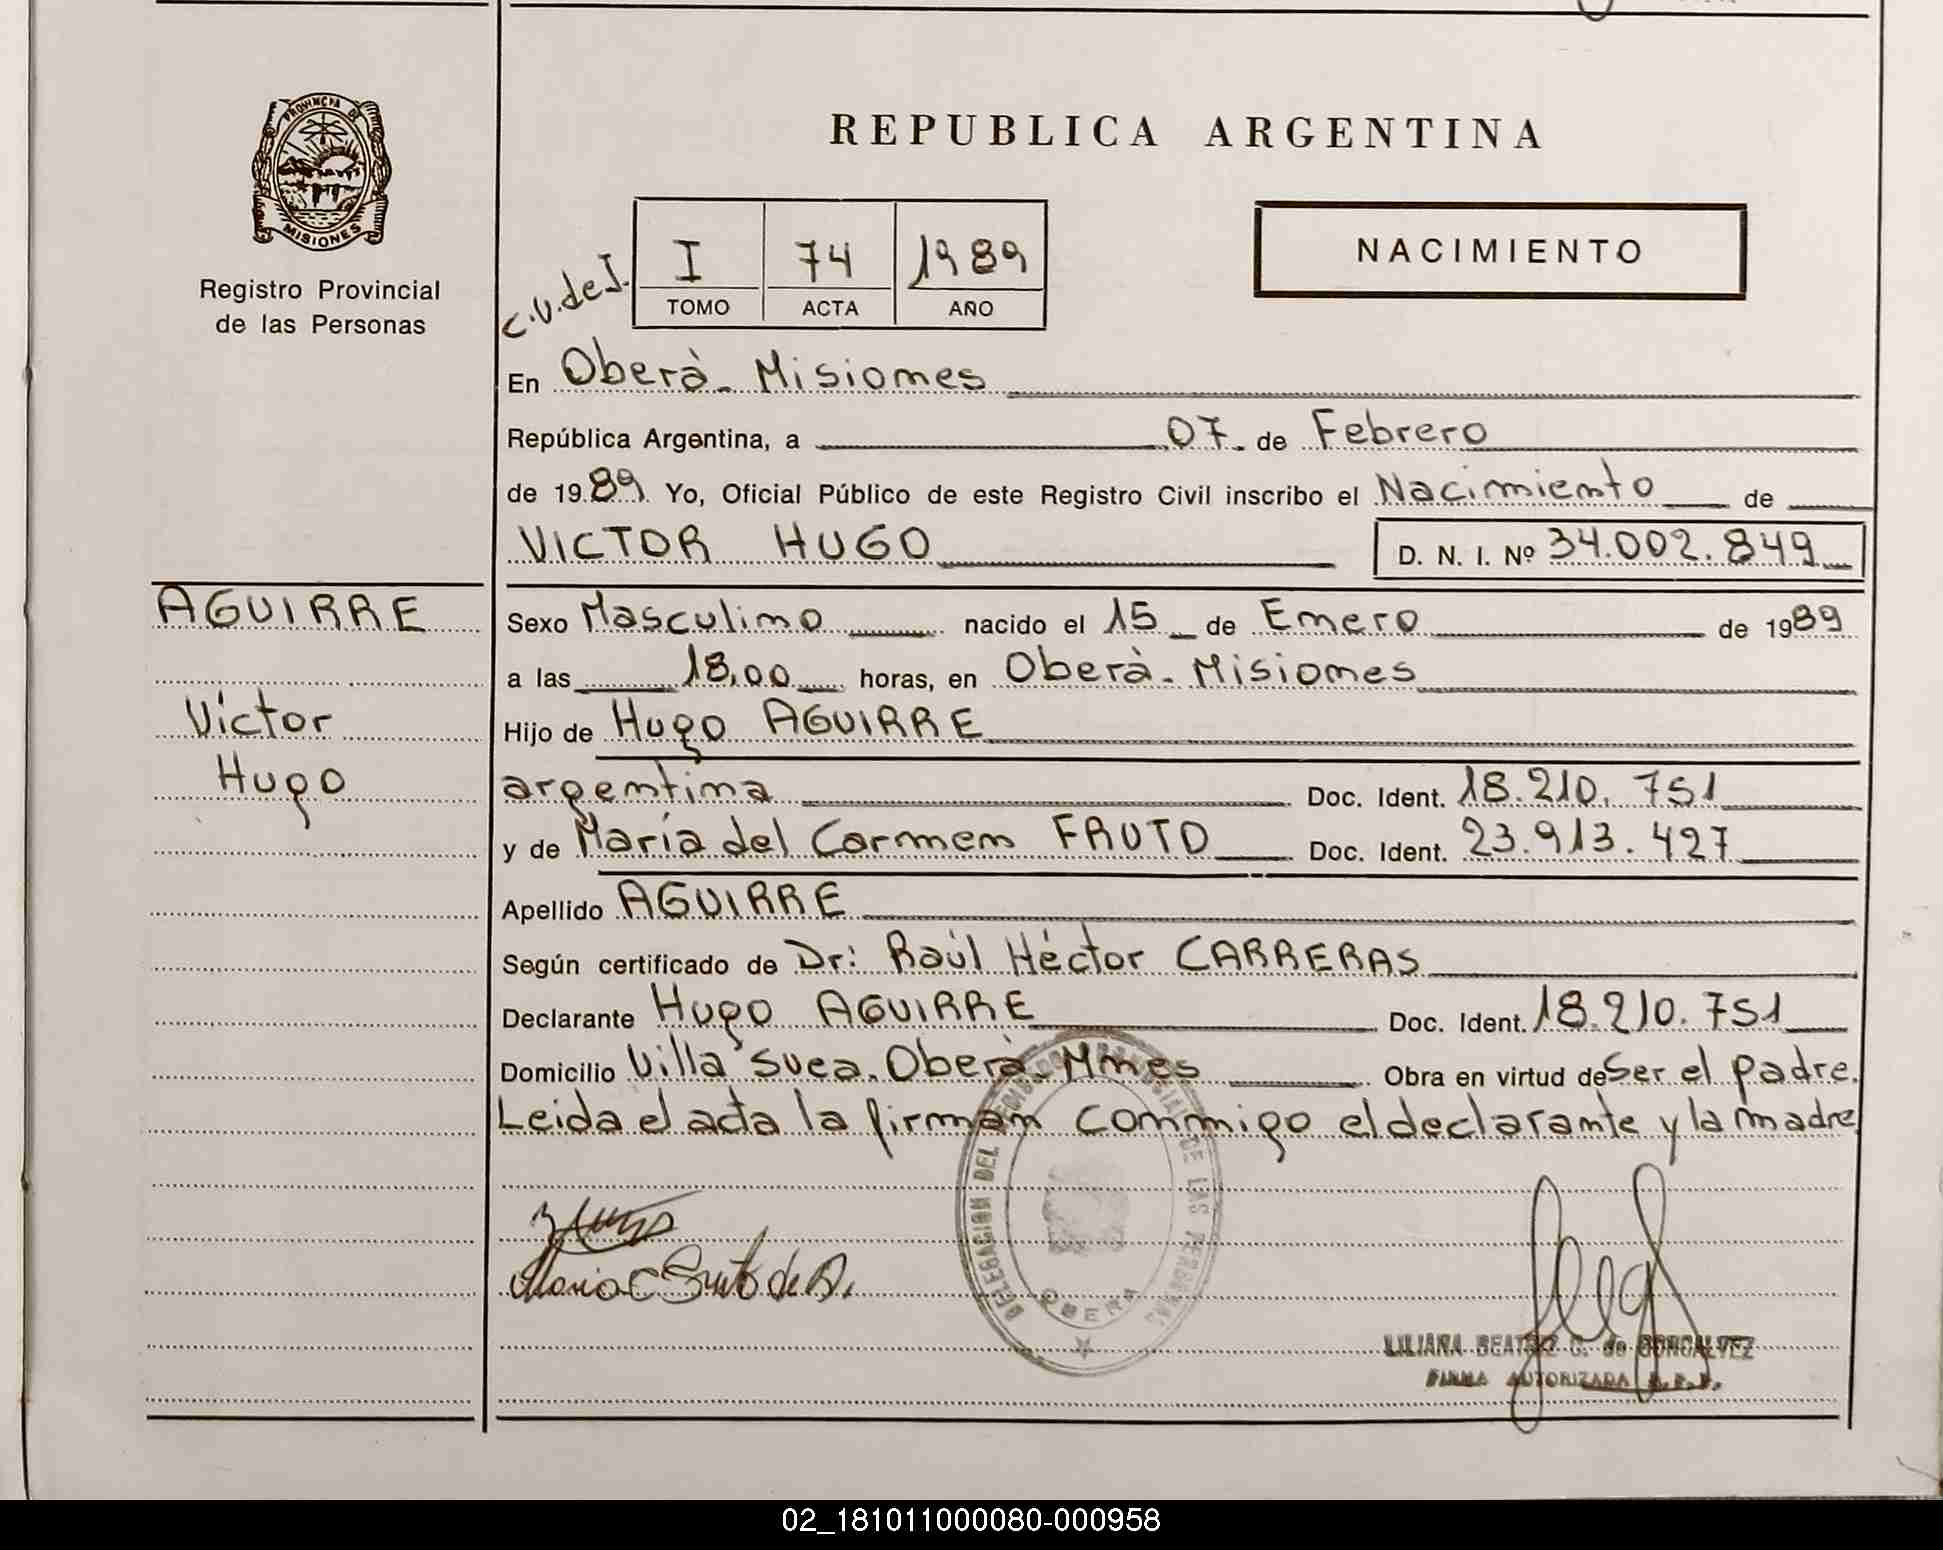 PROVINCIA DE
MISIONES
Registro Provincial
de las Personas
REPUBLICA ARGENTINA
NACIMIENTO
C.V. de I.
I 74 1989
TOMO ACTA AÑO
En Oberà - Misiones
República Argentina, a 07 - de Febrero
de 1989 Yo, Oficial Público de este Registro Civil inscribo el Nacimiento de
VICTOR HUGO D. N. I. Nº 34.002.849
AGUIRRE
Victor
Hugo
Sexo Masculino nacido el 15 de Enero de 1989
a las 18,00 horas, en Oberà - Misiones
Hijo de Hugo AGUIRRE
argentina Doc. Ident. 18.210.751
y de María del Carmen FRUTO Doc. Ident. 23.913.427
Apellido AGUIRRE
Según certificado de Dr: Raúl Héctor CARRERAS
Declarante Hugo AGUIRRE Doc. Ident. 18.210.751
Domicilio Villa Svea. Oberà - Mnes Obra en virtud de Ser el padre.
Leida el acta la firman conmigo el declarante y la madre
DELEGACION DEL REGISTRO PROVINCIAL DE LAS PERSONAS
OBERA
Maria C Fruto de A.
LILIANA BEATRIZ G. de GONCALVEZ
FIRMA AUTORIZADA R.P.P.
02_181011000080-000958